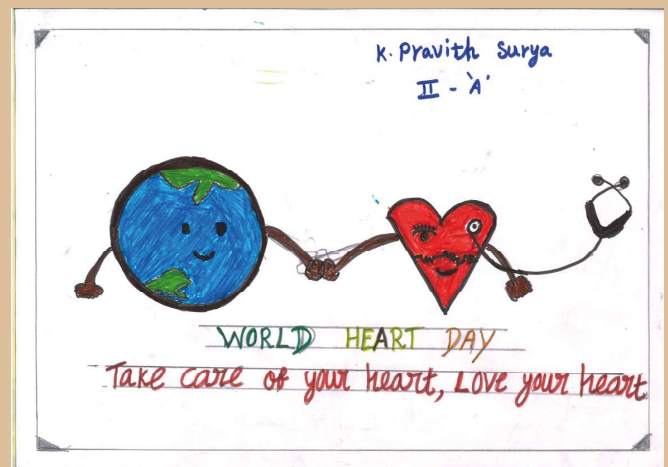 K. Pravith Surya
II - 'A'
WORLD HEART DAY
Take care of your heart, Love your heart.